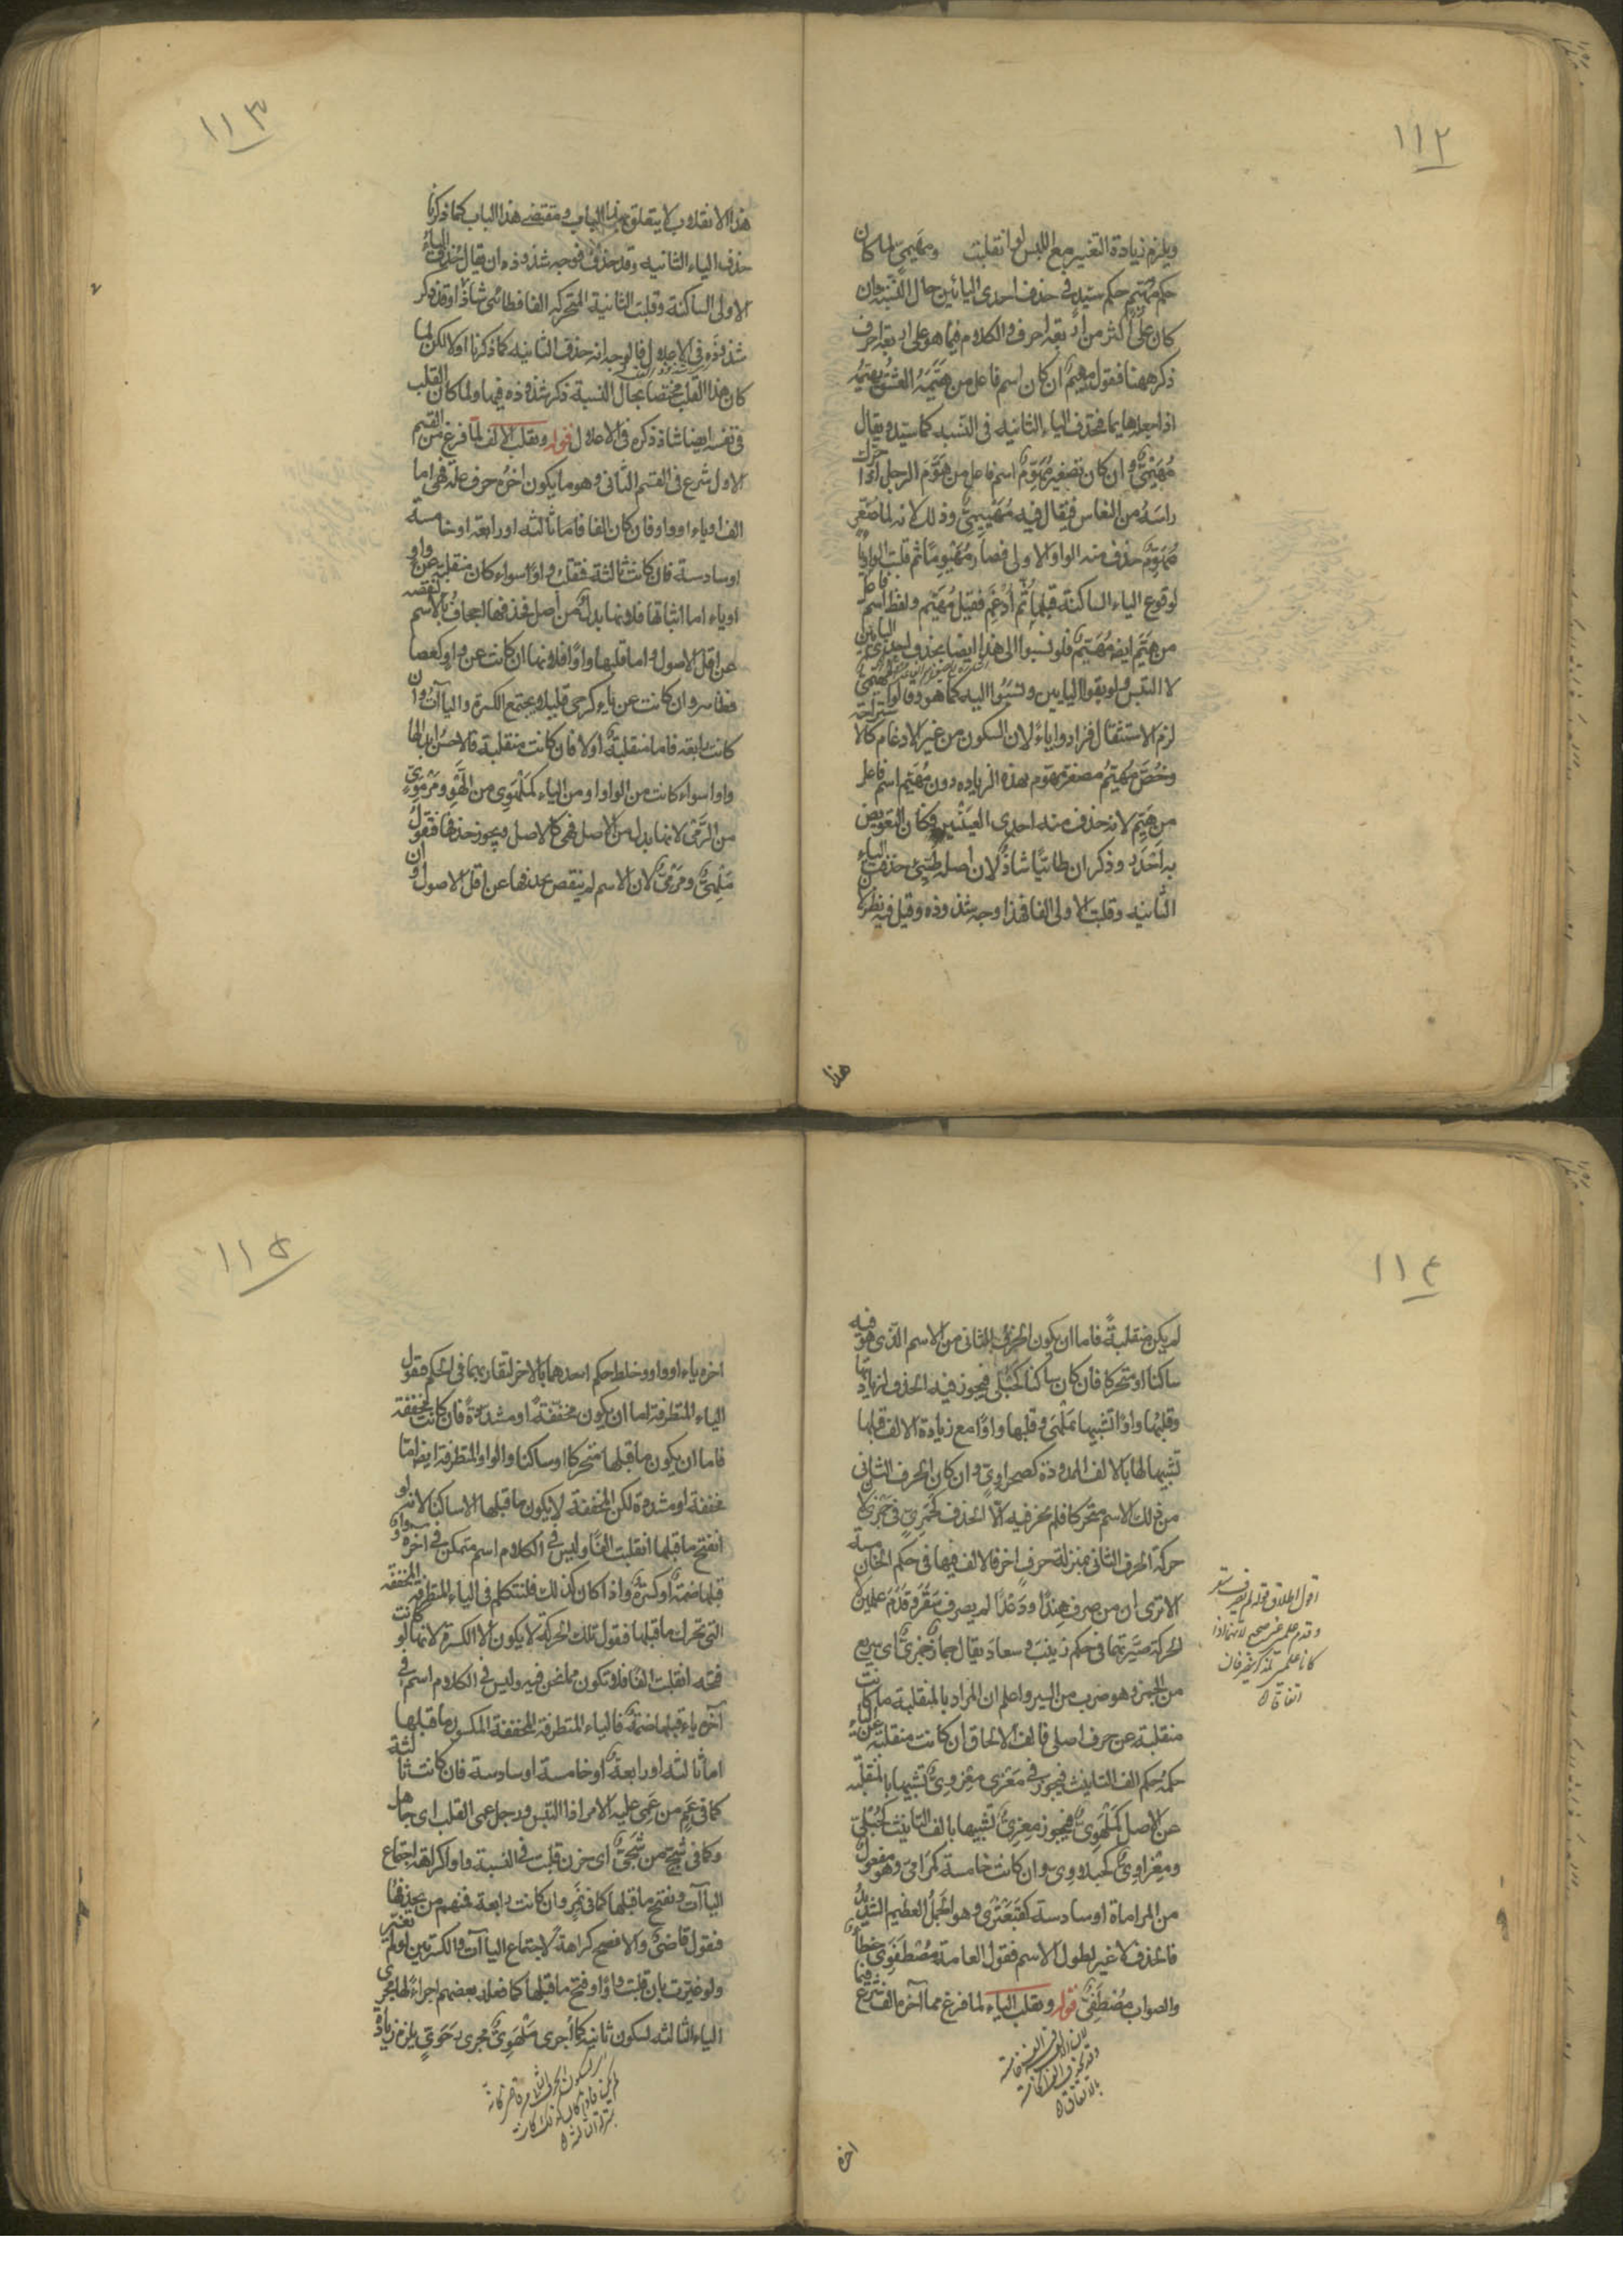 ١١٢
ويلزم زيادة التغيير مع اللبس لو انقلبت ومهيمي لما كان
حكم مهيم حكم سيد في حذف احدى اليائين حال النسبة وان
كان على اكثر من اربعة احرف والكلام فيما هو على اربعة احرف
ذكر ههنا فنقول مهيم ان كان اسم فاعل من هيمه العشق يهيمه
اذا جعله هايما فحذف الياء الثانيه في النسبه كما سيد ويقال
مهيمي وان كان تصغير مهوم اسم فاعل من هوم الرجل اذا حرك
راسه من النعاس فيقال فيه مهييمي وذلك لانه لما صغر
مهوم حذف منه الواو الاولى فصار مهيوم ثم قلبت الواو ياء
لوقوع الياء الساكنة قبلها ثم ادغم فقيل مهيم ولفظ اسم فاعل
من هيم ايضا مهيم فلو نسبوا الى هذا ايضا بحذف احدى اليائين
لا التبس ولو بقوا اليايين ونسبوا اليه كما هو وقالوا مهيمي
لزم الاستثقال فزادوا ياء لان السكون من غير الادغام كالاستراحة
وخص مهيم مصغر مهوم بهذه الزياده دون مهيم اسم فاعل
من هيم لانه حذف منه احدى العينين فكان التعويض
به اجدر وذكر ان طائيا شاذ لان اصله طيئي حذفت الياء
الثانيه وقلبت الاولى الفا فهذا وجه شذوذه وقيل فيه نظر لان
هذا
١١٣
هذا الانقلاب لا يتعلق بهذا الباب ومقتضى هذا الباب كما ذكرنا
حذف الياء الثانيه وقد حذف فوجه شذوذه ان يقال حذف الياء
الاولى الساكنة وقلبت الثانية المتحركه الفا فطائي شاذ وقد ذكر
شذوذه في الاعلال فالوجه انه حذف الثانيه كما ذكرنا اولا لكن لما
كان هذا القلب مختصا بحال النسبة ذكر شذوذه فيها ولما كان القلب
في نفسه ايضا شاذ ذكره في الاعلال قوله وتقلب الالف لما فرغ من القسم
الاول شرع في القسم الثاني وهو ما يكون اخره حرف علة فهي اما
الف او ياء او واو فان كان الفا فاما ثالثه او رابعة او خامسة
او سادسة فان كانت ثالثة فقلب واوا سواء كان منقلبة عن واو
او ياء اما اثباتها فلانها بدل من اصل فحذفها اجحاف بالاسم لنقصه
عن اقل الاصول واما قلبها واوا فلانها ان كانت عن واو كعصا
فظاهر وان كانت عن ياء كرحى قلبيلا يجتمع الكسرة والياآت وان
كانت رابعة فاما منقلبة اولا فان كانت منقلبة فالاحسن ابدالها
واوا سواء كانت من الواو او من الياء كملهوي من اللهو ومرموي
من الرمي لانها بدل من الاصل فهي كالاصل ويجوز حذفها فنقول
ملهي ومرمي لان الاسم لم ينقص بحذفها عن اقل الاصول وان
١١٤
لم يكن منقلبة فاما ان يكون الحرف الثاني من الاسم الذي هو فيه
ساكنا او متحركا فان كان ساكنا كحبلى فيجوز فيه الحذف لزيادتها
وقلبها واوا تشبيها بملهى وقلبها واوا مع زيادة الالف قبلها
تشبيها لها بالالف الممدودة كصحراوي وان كان الحرف الثاني
من ذلك الاسم متحركا فلم يجز فيه الا الحذف كجمزي في جمزى لان
حركة الحرف الثاني بمنزلة حرف اخر فالالف فيها في حكم الخامسة
الا ترى ان من صرف هندا ودعدا لم يصرف سقر وقدم علمين لان
الحركة صيرتهما في حكم زينب وسعاد يقال حمار جمزى اي سريع
من الجمز وهو ضرب من السير واعلم ان المراد بالمنقلبة ما كانت
منقلبة عن حرف اصلي فالف الالحاق ان كانت منقلبة عن الياء
حكمه حكم الف التانيث فيجوز في معزى معزوي تشبيها بالمنقلبة
عن الاصل كملهوي فيجوز معزي تشبيها بالف التانيث كحبلى
ومعزاوي كحبلاوي وان كانت خامسة كمرامى وهو مفعول
من المراماة او سادسة كقبعثرى وهو الجمل العظيم الشديد
فالحذف لا غير لطول الاسم فقول العامة مصطفوي خطأ
والصواب مصطفي قوله وتقلب الياء لما فرغ مما آخره الف شرع فيما
اقول اطلاق قوله لم يصرف سقر
وقدم علمين غير صحيح لانهما اذا
كانا علمين لمذكر ينصرفان
اتفاقا
بالاتفاق
اخره
١١٥
اخره ياء او واو وخلط حكم احدهما بالاخر لتقاربهما في الحكم فنقول
الياء المتطرفة اما ان يكون مخففة او مشددة فان كانت مخففة
فاما ان يكون ما قبلها متحركا او ساكنا والواو المتطرفة ايضا اما
مخففة او مشددة لكن المخففة لا يكون ما قبلها الا ساكنا لانه لو
انفتح ما قبلها انقلبت الفا وليس في الكلام اسم متمكن في اخره واو
قبلها ضمة او كسرة واذا كان كذلك فلنتكلم في الياء المتطرفة المخففة
التي تحرك ما قبلها فنقول تلك الحركة لا يكون الا الكسرة لانها لو كانت
فتحه انقلبت الفا فلا تكون مما نحن فيه وليس في الكلام اسم في
آخره ياء قبلها ضمة فالياء المتطرفة المخففة المكسور ما قبلها
اما ثالثه او رابعة او خامسة او سادسة فان كانت ثالثة
كما في عم من عمي عليه الامر اذا التبس ورجل عمي القلب اي جاهل
وكما في شج من شجي اي حزن قلبت في النسبة واوا كراهة اجتماع
الياآت ونفتح ما قبلها كما في نمر وان كانت رابعة فمنهم من يحذفها
فنقول قاضي والافصح كراهة لاجتماع الياآت والكسرتين لو لم تغير
ولو غيرت بان قلبت واوا وفتح ما قبلها كما فعله بعضهم اجراء لها مجرى
الياء الثالثه لسكون ثانيه كما اجرى ملهوي مجرى رحوي يلزم زيادة